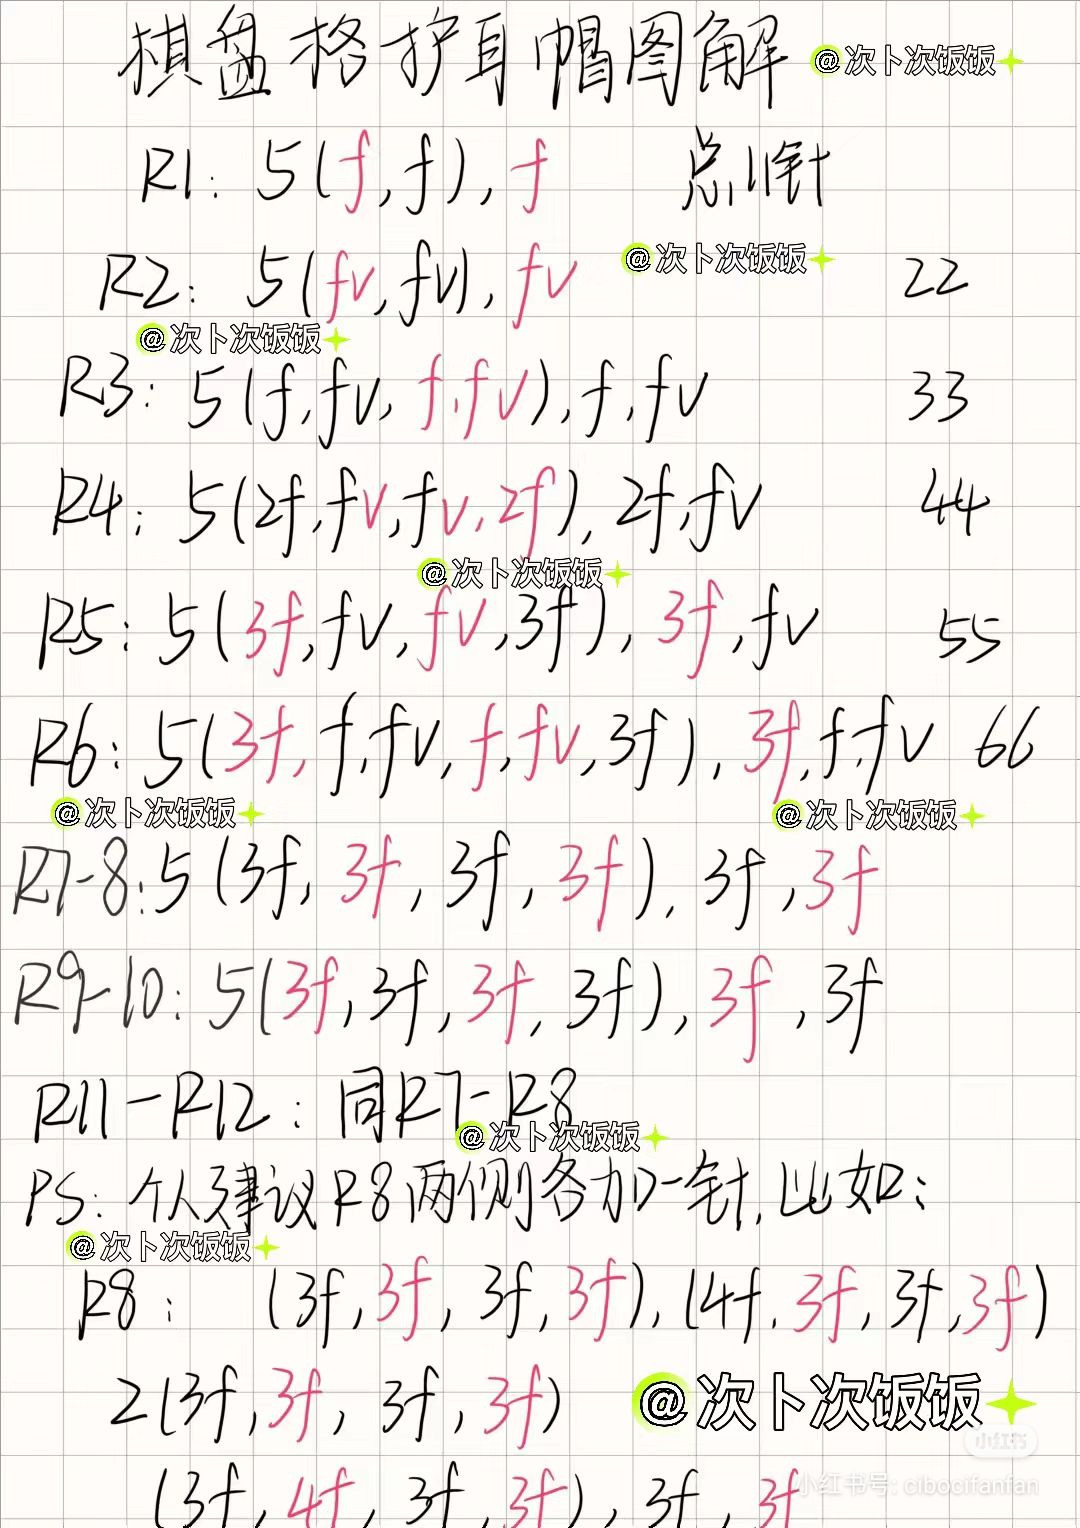 棋盘格护耳帽图解
@次卜次饭饭
R1: 5(f,f),f 总11针
R2: 5(fv,fv),fv 22
@次卜次饭饭
@次卜次饭饭
R3: 5(f,fv,f,fv),f,fv 33
R4: 5(2f,fv,fv,2f),2f,fv 44
@次卜次饭饭
R5: 5(3f,fv,fv,3f),3f,fv 55
R6: 5(3f,f,fv,f,fv,3f),3f,f,fv 66
@次卜次饭饭
@次卜次饭饭
R7-8: 5(3f,3f,3f,3f),3f,3f
R9-10: 5(3f,3f,3f,3f),3f,3f
R11-R12: 同R7-R8
@次卜次饭饭
PS: 个人建议R8两侧各加一针,比如:
@次卜次饭饭
R8: (3f,3f,3f,3f),(4f,3f,3f,3f)
2(3f,3f,3f,3f)
@次卜次饭饭
小红书
小红书号: cibocifanfan
(3f,4f,3f,3f),3f,3f